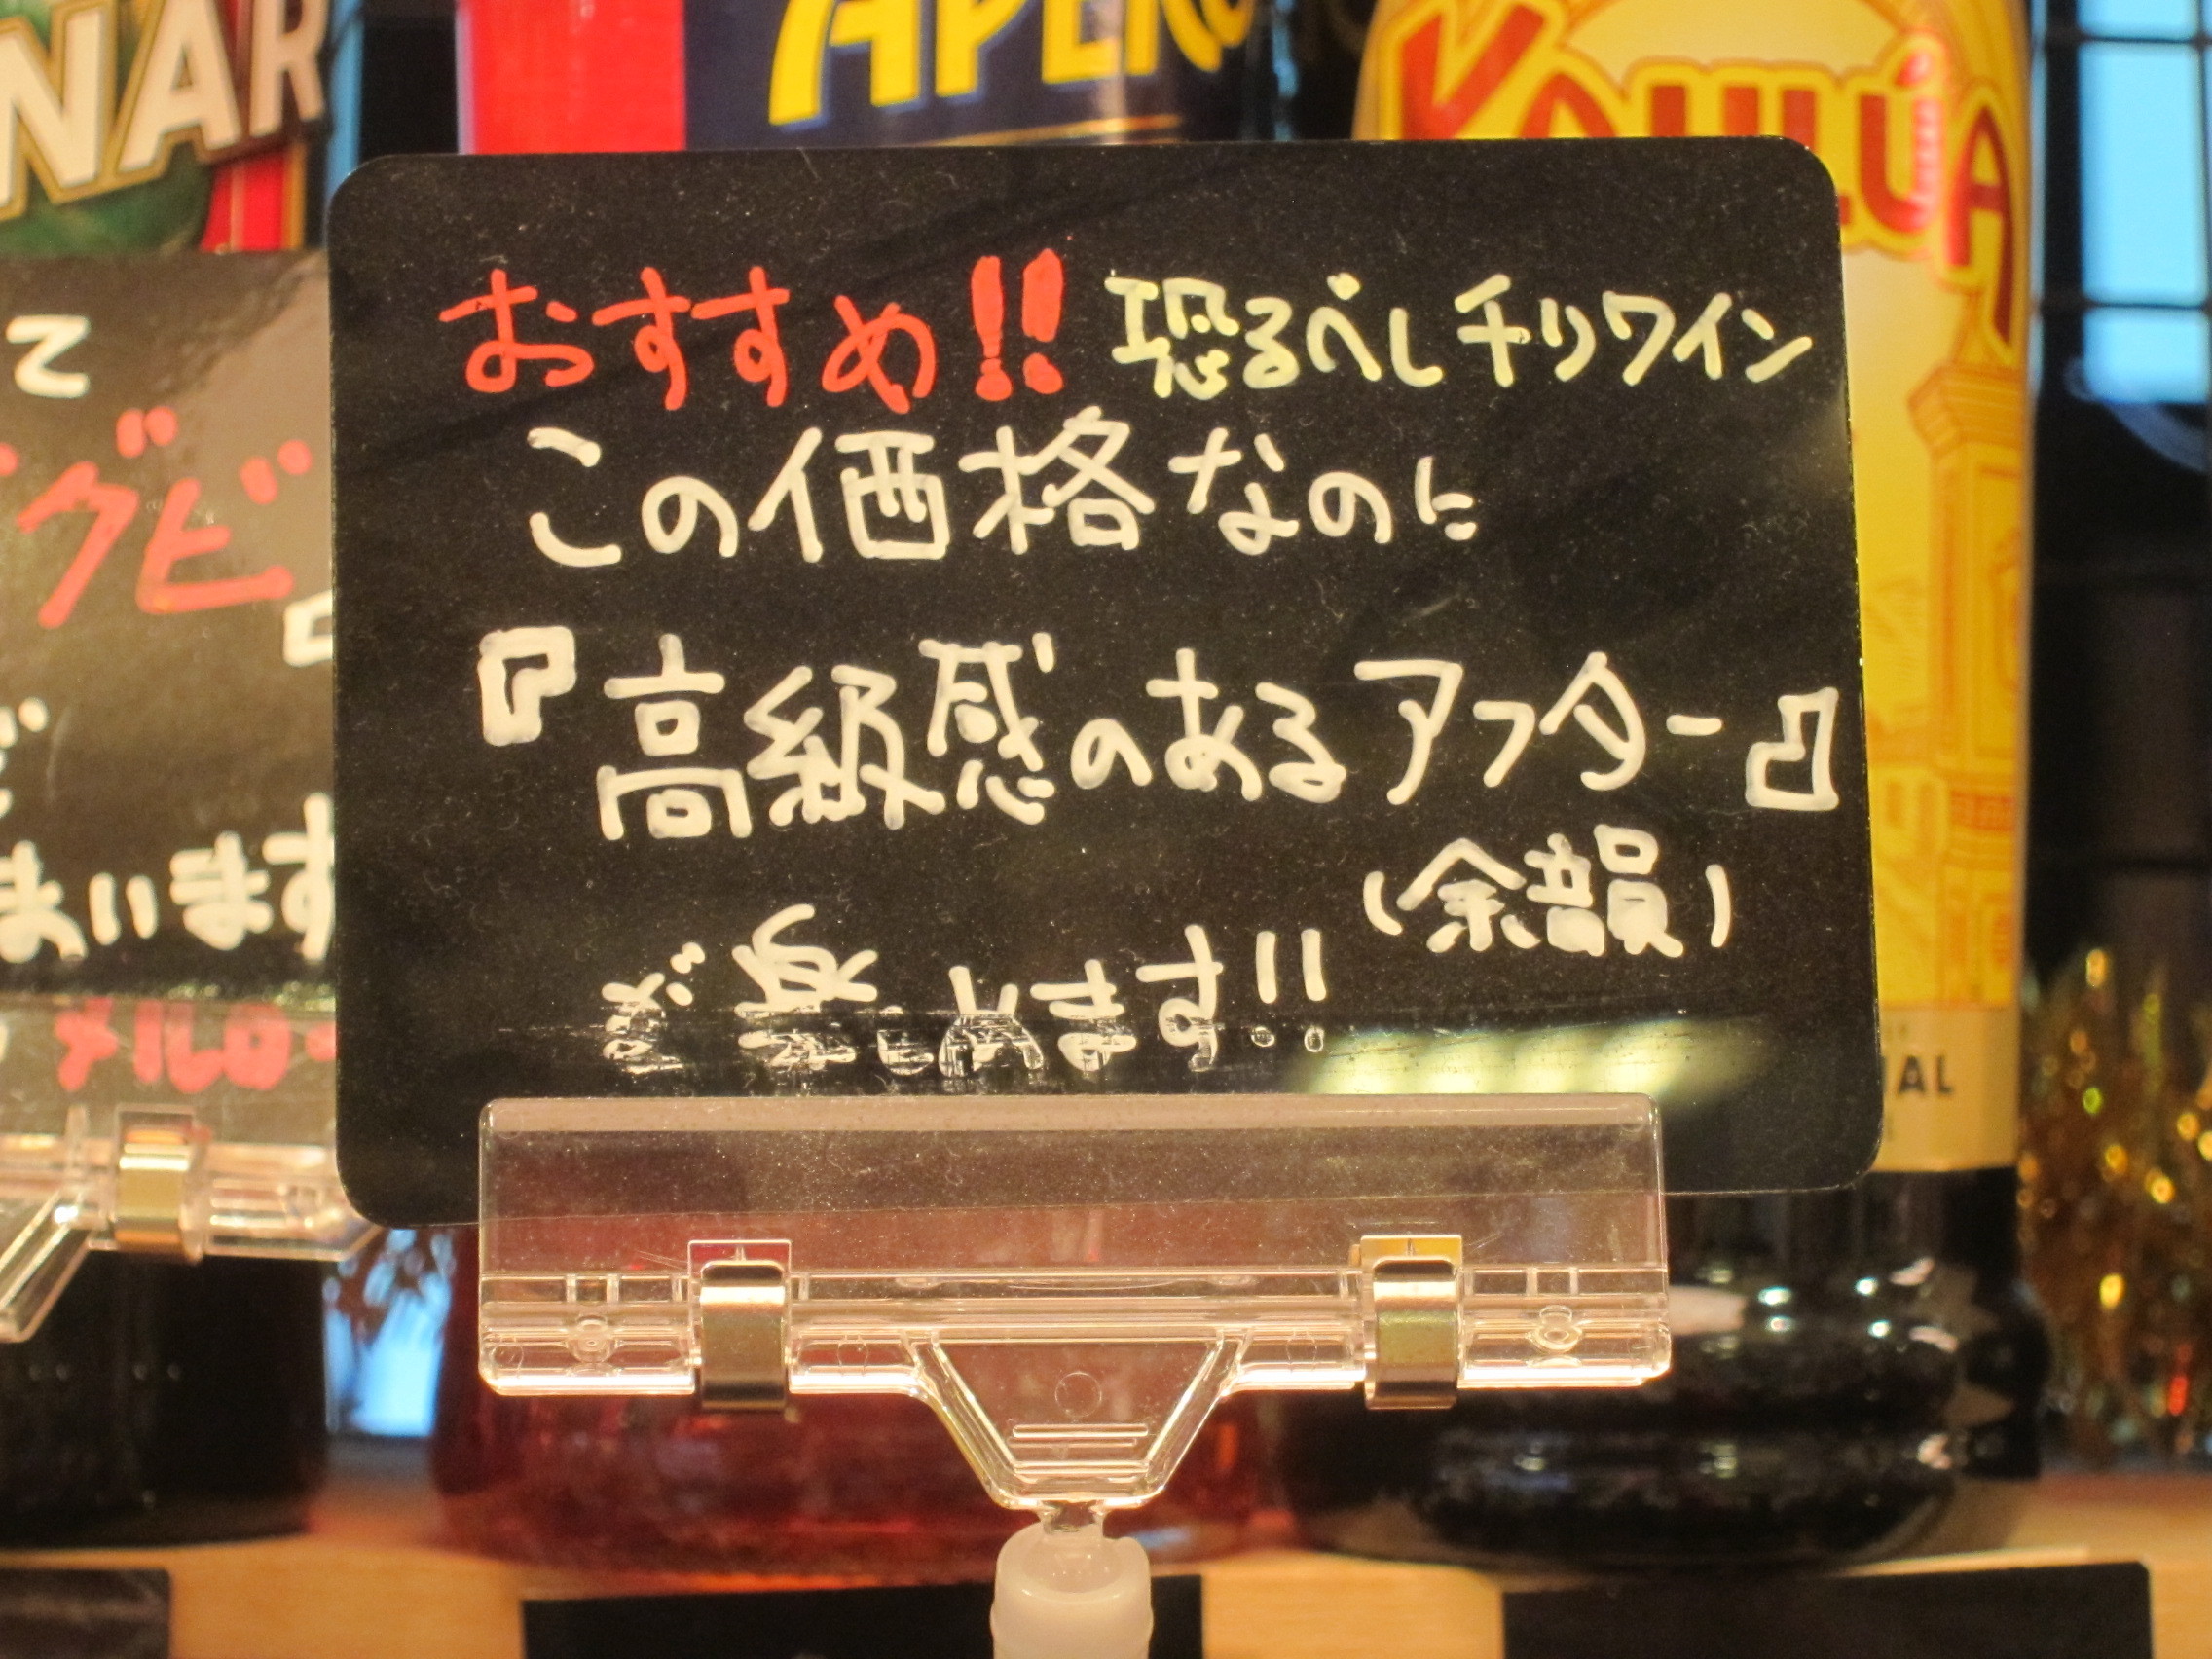 おすすめ!! 恐るべしチリワイン
この価格なのに
『高級感のあるアフター』
(余韻)
が楽しめます!!
NAR
APERO
KAHLÚA
AL
て
グビ
まいます
メルロー